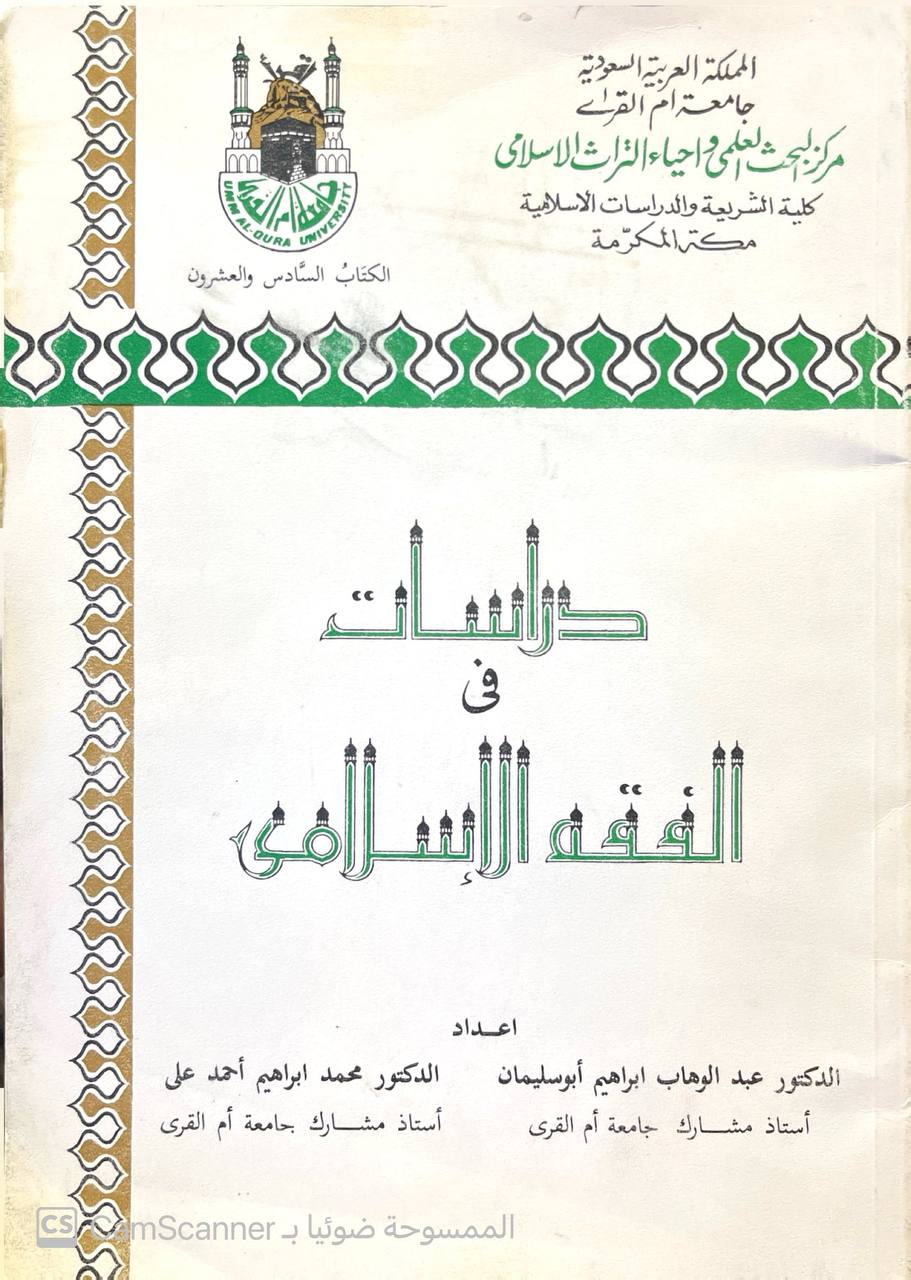 المملكة العربية السعودية
جامعة ام القرى
مركز البحث العلمى واحياء التراث الاسلامى
كلية الشريعة والدراسات الاسلامية
مكة المكرّمة
جامعة أم القرى
UMM AL-QURA UNIVERSITY
الكتَابُ السَّادس والعشرون
دراسات
فى
الفقه الإسلامى
اعـداد
الدكتور عبد الوهاب ابراهيم أبوسليمان
الدكتور محمد ابراهيم أحمد على
أستاذ مشـــارك جامعة أم القرى
أستاذ مشـــارك بجامعة أم القرى
CS CamScanner الممسوحة ضوئيا بـ